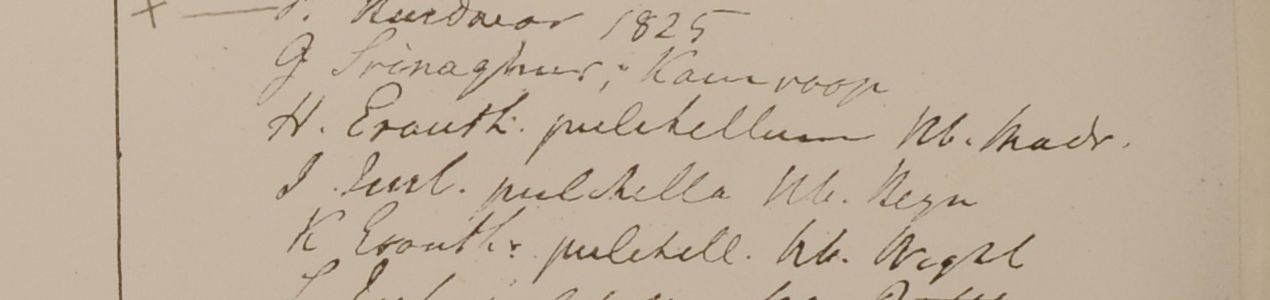 F. Hurdwar 1825
G Srinaghur; Kamroop
H. Eranth. pulchellum Hb. Madr.
I Just. pulchella Hb. Heyn
K Eranth. pulchell. Hb. Wight
L Just.